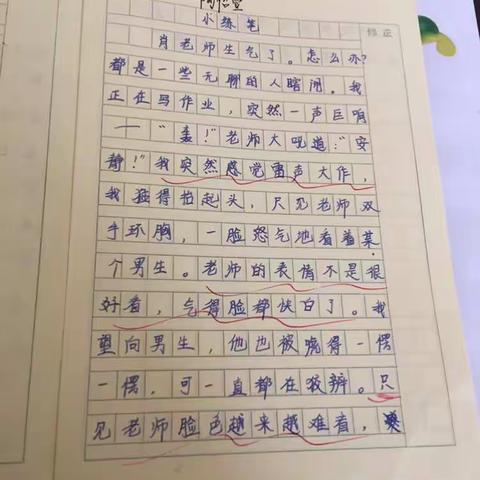 小练笔
修正
肖老师生气了。怎么办?
都是一些无聊的人瞎闹。我
正在写作业,突然一声巨响
——"轰!"老师大吼道:"安
静!"我突然感觉雷声大作,
我猛得抬起头,只见老师双
手环胸,一脸怒气地看着某
个男生。老师的表情不是很
好看,气得脸都快白了。我
望向男生,他也被唬得一愣
一愣,可一直都在狡辩。只
见老师脸色越来越难看,